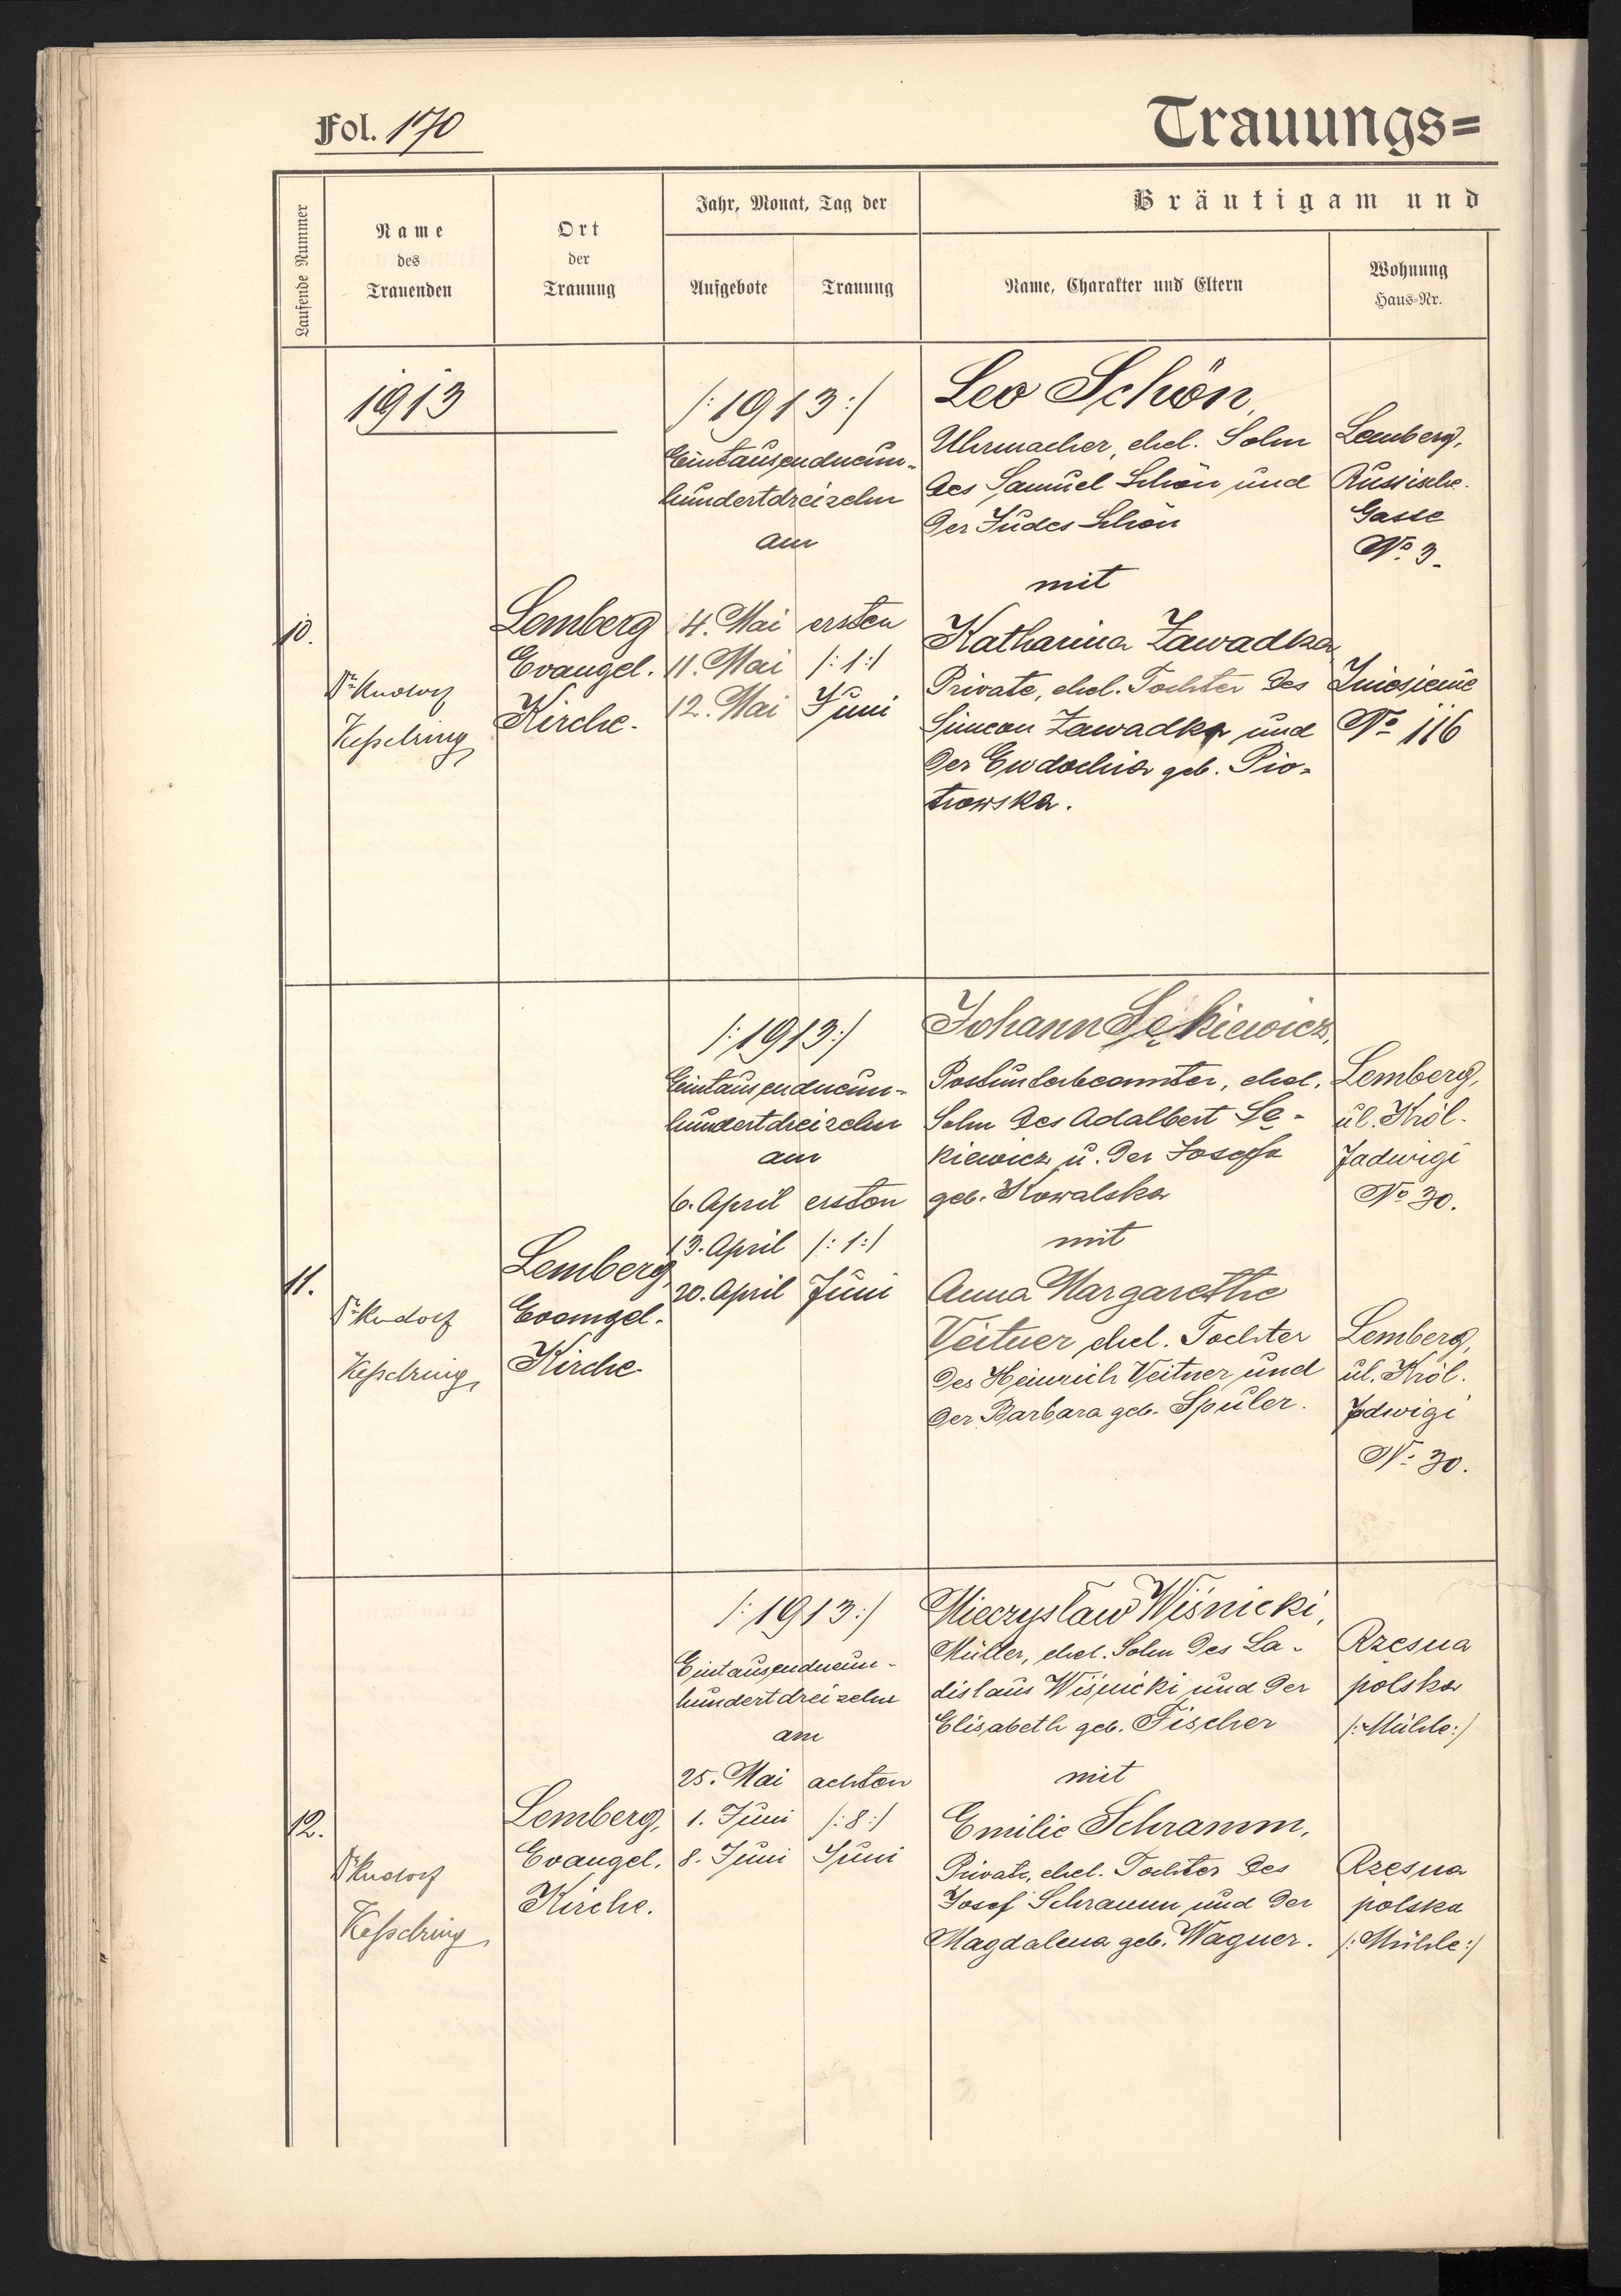 Fol. 170
Trauungs=
Laufende Nummer
Name
des
Trauenden
Ort
der
Trauung
Jahr, Monat, Tag der
Aufgebote
Trauung
Bräutigam und
Name, Charakter und Eltern
Wohnung
Haus=Nr.
1913
10.
Dr. Rudolf
Kesselring
Lemberg
Evangel.
Kirche.
/:1913:/
Eintausendneun-
hundertdreizehn
am
4. Mai ersten
11. Mai /:1:/
12. Mai Juni
Leo Schön,
Uhrmacher, ehel. Sohn
des Samuel Schön und
der Judes Schön
mit
Katharina Zawadka
Private, ehel. Tochter des
Simeon Zawadka und
der Ewdochia geb. Pio-
trowska.
Lemberg,
Russische
Gasse
No. 3.
Zniesienie
No. 116
11.
Dr. Rudolf
Kesselring
Lemberg,
Evangel.
Kirche.
/:1913:/
Eintausendneun-
hundertdreizehn
am
6. April ersten
13. April /:1:/
20. April Juni
Johann Sękiewicz,
Postunterbeamter, ehel.
Sohn des Adalbert Sę-
kiewicz u. der Josefa
geb. Kowalska
mit
Anna Margarethe
Veitner ehel. Tochter
des Heinrich Veitner und
der Barbara geb. Spuler.
Lemberg,
ul. Król.
Jadwigi
No. 30.
Lemberg,
ul. Król.
Jadwigi
No. 30.
12.
Dr. Rudolf
Kesselring
Lemberg,
Evangel.
Kirche.
/:1913:/
Eintausendneun-
hundertdreizehn
am
25. Mai achten
1. Juni /:8:/
8. Juni Juni
Mieczysław Wiśnicki,
Müller, ehel. Sohn des La-
dislaus Wiśnicki und der
Elisabeth geb. Fischer
mit
Emilie Schramm,
Private, ehel. Tochter des
Josef Schramm und der
Magdalena geb. Wagner.
Rzesna
polska
/:Mühle:/
Rzesna
polska
/:Mühle:/